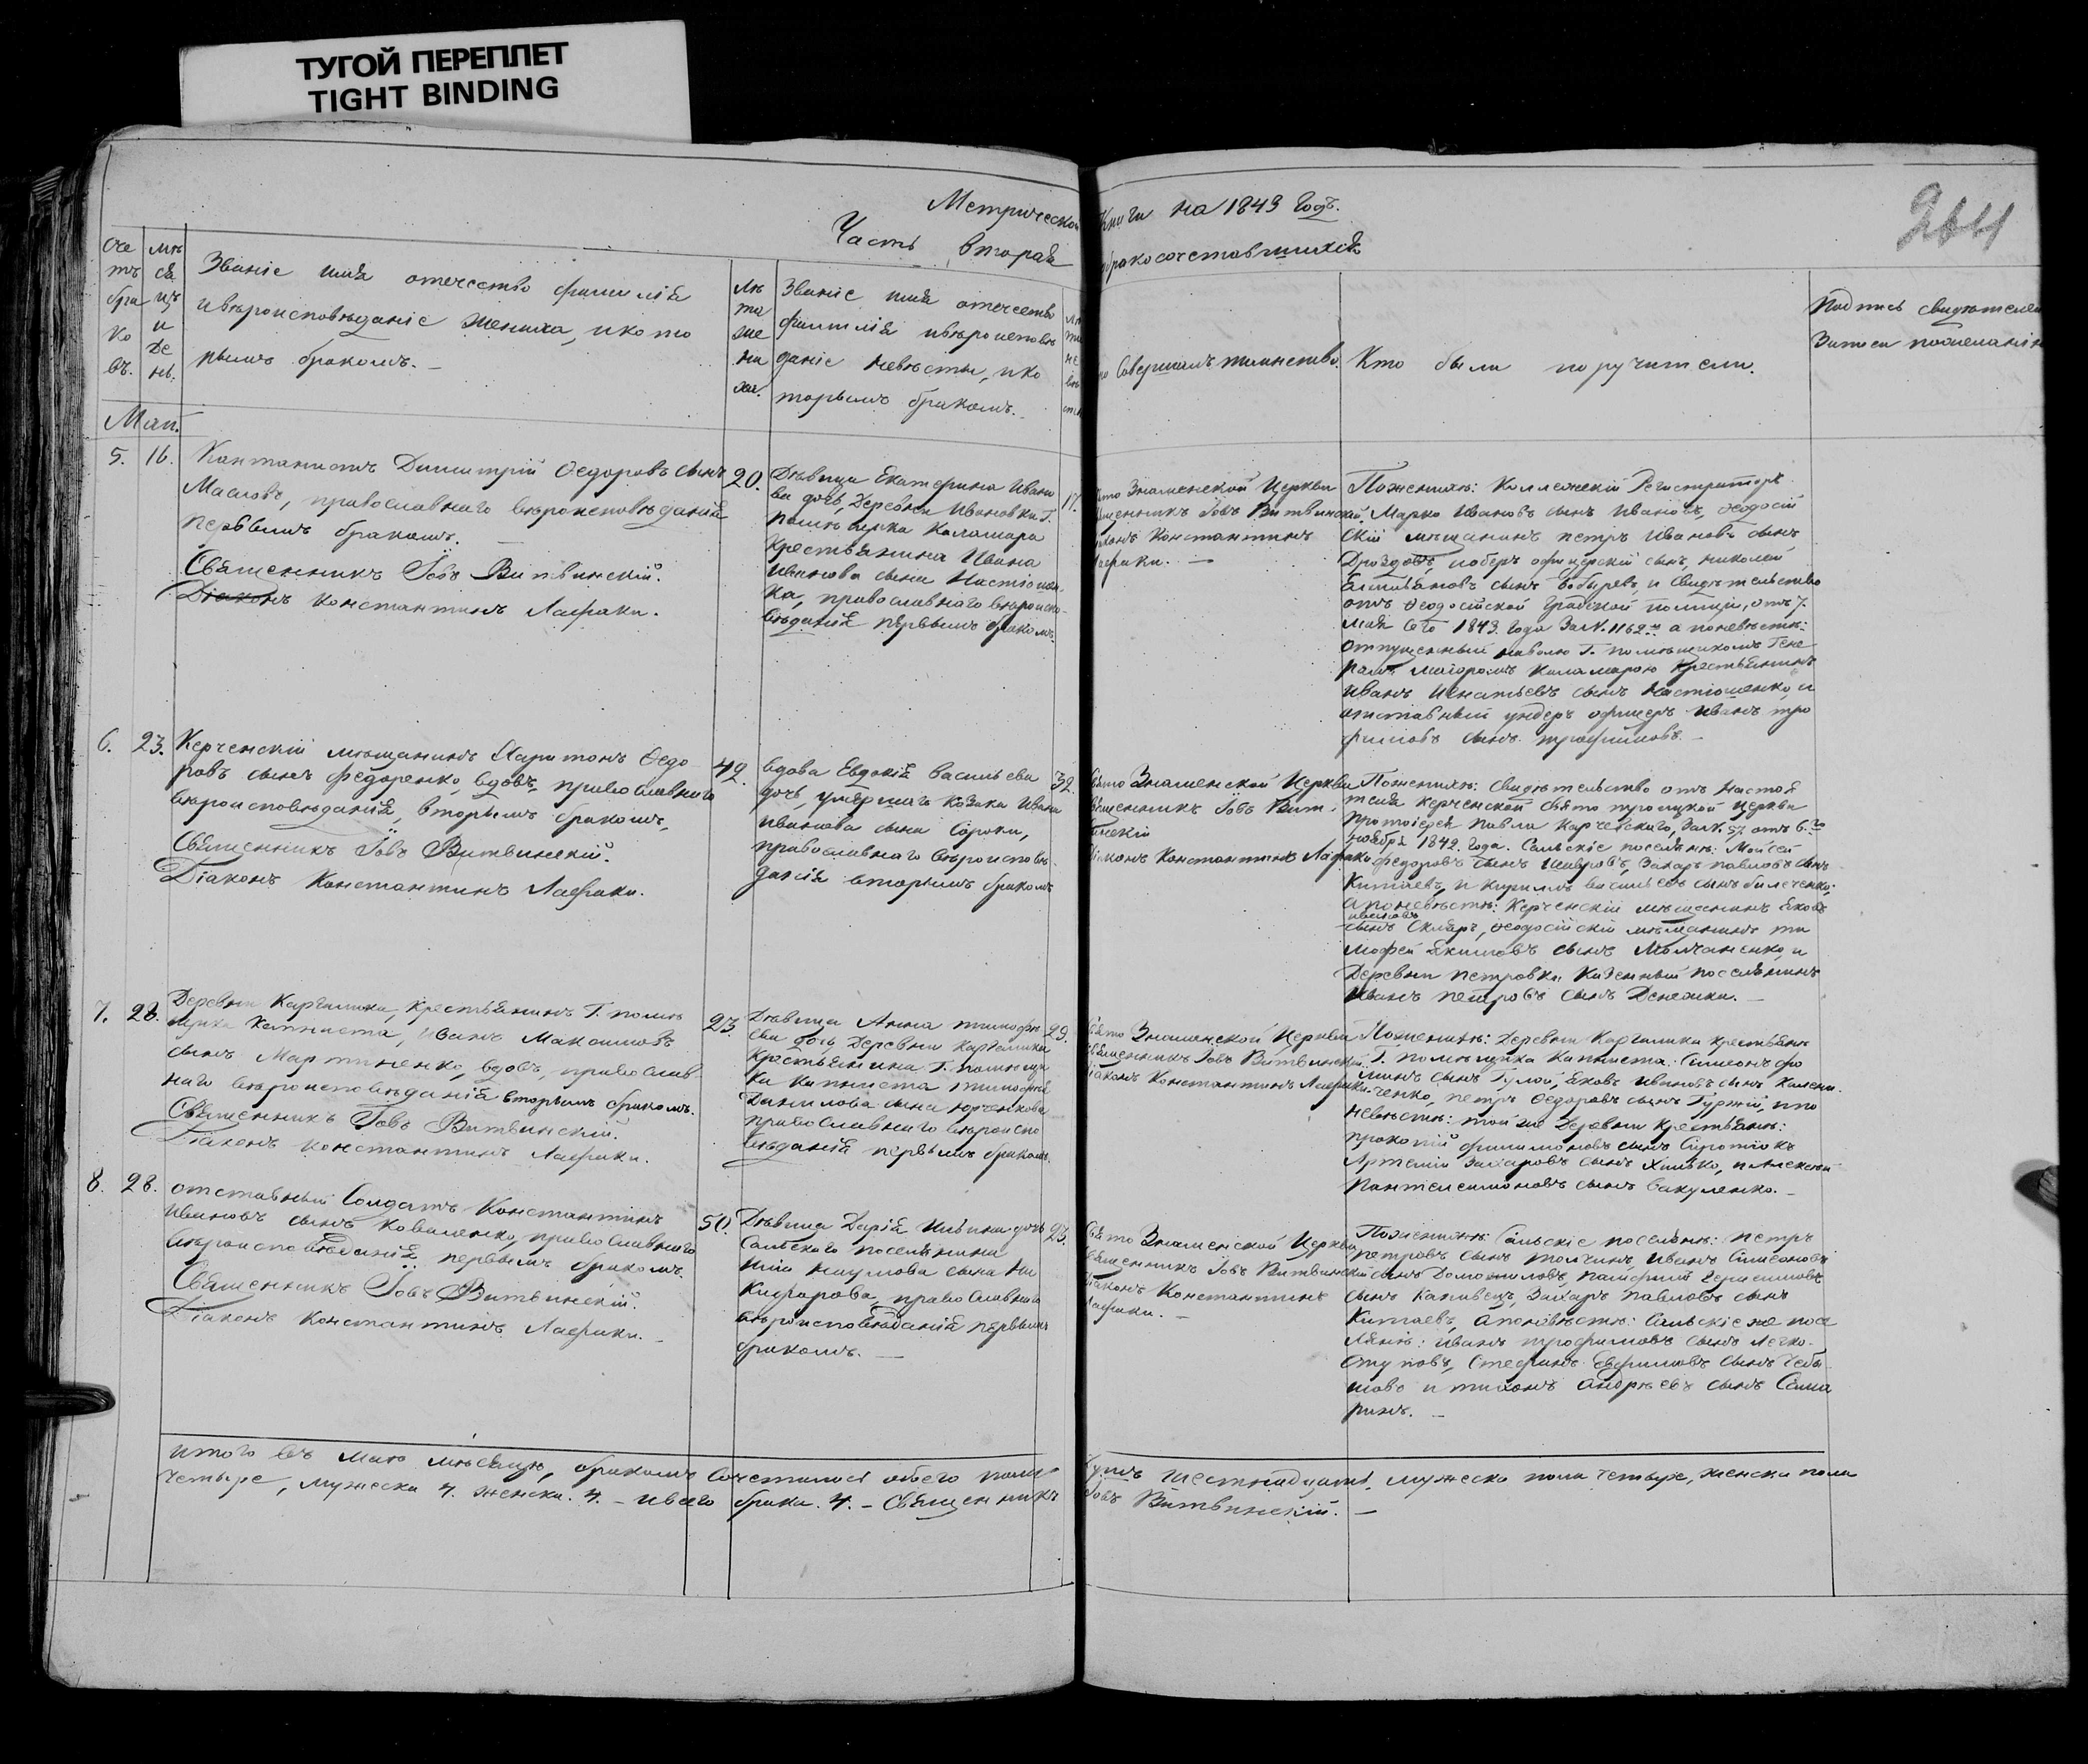 ТУГОЙ ПЕРЕПЛЕТ
TIGHT BINDING
Метрической Книги на 1843 Годъ.
Часть вторая бракосочетавшихся
264
Сче
тъ
бра
ко
въ.
Мѣ
ся
цъ
и
де
нь.
Званіе имя отечество фамилія
и вѣроисповѣданіе жениха, и кото
рымъ бракомъ. -
Лѣ
та
же
ни
ха.
Званіе имя отечество
фамилія и вѣроисповѣ
даніе невѣсты, и ко
торымъ бракомъ. -
Совершалъ таинство.
Кто были поручители.
Подпись свидѣтелей
Записи по желанію
Маи.
5. 16.
Кантанистъ Димитрій Ѳедоровъ сынъ
Масловъ, православнаго вѣроисповѣданія
первымъ бракомъ. -
Священникъ Іовъ Витвинскій.
Діаконъ Константинъ Лафаки.
20.
Дѣвица Екатерина Ивано
ва дочь, Деревни Ивановки Г.
помѣщика Каламара
Крестьянина Ивана
православнаго вѣроиспо-
вѣданія первымъ бракомъ.
17.
Знаменской Церкви
Іовъ Витвинскій.
Константинъ
По женихѣ: Коллежскій Регистраторъ
Марко Ивановъ сынъ Ивановъ, Ѳеодосій
скій мѣщанинъ петръ Ивановъ сынъ
Дроздовъ, оберъ офицерскій сынъ, николай
сынъ Бобыревъ, и свидѣтельство
отъ Ѳеодосійской градской полиціи, отъ 7.
мая сего 1843. года за №. 1162 а по невѣстѣ:
отпущенный на волю Г. помѣщикомъ Гене
ралъ маіоромъ Каламарою крестьянинъ
Иванъ Игнатьевъ сынъ Настюшенко, и
отставный ундеръ офицеръ Иванъ тро
фимовъ сынъ трофимовъ. -
6. 23.
Керченскій мѣщанинъ Харитонъ Ѳедо
ровъ сынъ Федоренко, вдовъ, православнаго
вѣроисповѣданія, вторымъ бракомъ,
Священникъ Іовъ Витвинскій.
Діаконъ Константинъ Лафаки.
42.
вдова Евдокія васильева
дочь, умершаго козака Ивана
Иванова сына Сороки,
православнаго вѣроисповѣ
данія вторымъ бракомъ
32.
Знаменской Церкви
Іовъ Вит-
винскій
Діаконъ Константинъ Лафаки
По женихѣ: Свидѣтельство отъ Настоя
теля керченской свято троицкой церкви
протоіерея Павла за №. 57. отъ 6.го
ноября 1842. года. Сельскіе поселяне: Мойсей
федоровъ сынъ Захаръ павловъ сынъ
Китаевъ, и кирилъ васильевъ сынъ
а по невѣстѣ: Керченскій мѣщанинъ Яковъ
ивановъ
сынъ Скляръ, Ѳеодосійскій мѣщанинъ ти
мофей Якимовъ сынъ Молчаненко, и
Деревни петровки казенный поселянинъ
Иванъ петровъ сынъ Денежка. -
7. 28.
Деревни Каргалика, крестьянинъ Г. помѣ
щика Капниста, Иванъ Максимовъ
сынъ Мартиненко, вдовъ, православ-
наго вѣроисповѣданія вторымъ бракомъ.
Священникъ Іовъ Витвинскій.
Діаконъ Константинъ Лафаки.
23.
Дѣвица Анна тимофѣ
ева дочь, Деревни Каргалика
крестьянина Г. помѣщи
ка Капниста тимофея
Данилова сына Юрченкова
православнаго вѣроиспо
вѣданія первымъ бракомъ.
29.
Знаменской Церкви
Священникъ Іовъ Витвинскій
Діаконъ Константинъ Лафаки.
По женихѣ: Деревни Каргалика крестьяне
Г. помѣщика Капниста: Симеонъ фо
минъ сынъ Гулой, Яковъ Ивановъ сынъ Калени-
ченко, петръ Ѳедоровъ сынъ и по
невѣстѣ: той же Деревни крестьяне:
прокопій филимоновъ сынъ Сиротюкъ
Артемій Захаровъ сынъ и Алексей
Пантелеимоновъ сынъ вакуленко. -
8. 28.
отставный Солдатъ Константинъ
Ивановъ сынъ Коваленко, православнаго
вѣроисповѣданія первымъ бракомъ.
Священникъ Іовъ Витвинскій.
Діаконъ Константинъ Лафаки. -
50.
Дѣвица Дарія Ильина дочь
Сельскаго поселянина
Иліи Наумова сына Ни
кифорова, православнаго
вѣроисповѣданія первымъ
бракомъ. -
23.
Знаменской Церкви
Священникъ Іовъ Витвинскій
Діаконъ Константинъ
Лафаки. -
По женихѣ: Сельскіе поселяне: петръ
петровъ сынъ Иванъ Симеоновъ
сынъ Доможивовъ,
сынъ Захаръ Павловъ сынъ
Китаевъ, а по невѣстѣ: Сельскіе же посе
ляне: Иванъ трофимовъ сынъ Легко-
ступовъ, Стефанъ Евфимовъ сынъ Чебы
шовъ и тихонъ Андрѣевъ сынъ Сама
ринъ. -
итого въ маю мѣсяцѣ, бракомъ Сочеталось обоего пола душъ мужеска пола четыре, женска пола
четыре, мужеска 4. женска. 4. - и всего брака. 4. - Священникъ Іовъ Витвинскій. -